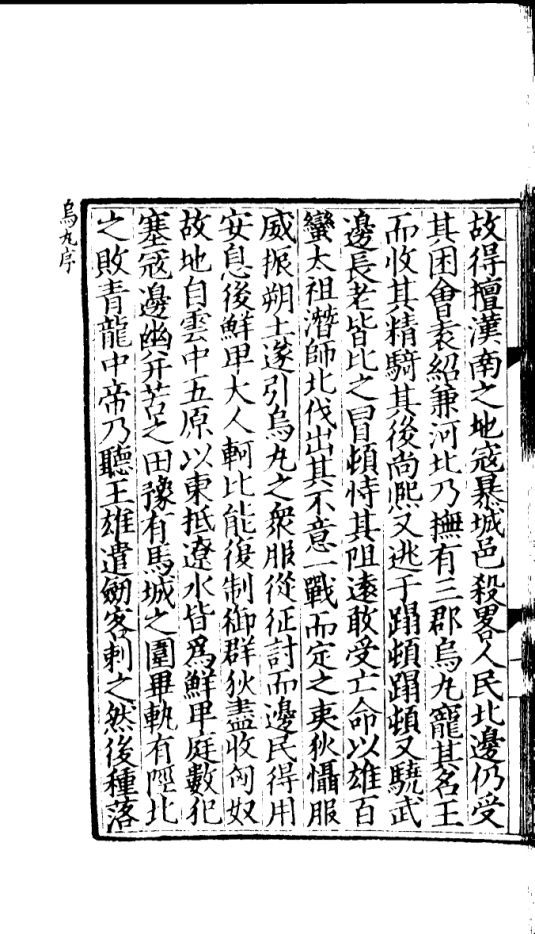 故得擅漢南之地寇暴城邑殺畧人民北邊仍受
其困會袁紹兼河北乃撫有三郡烏丸寵其名王
而收其精騎其後尚熙又逃于蹋頓蹋頓又驍武
邊長老皆比之冒頓恃其阻遠敢受亡命以雄百
蠻太祖潛師北伐出其不意一戰而定之夷狄懾服
威振朔土遂引烏丸之衆服從征討而邊民得用
安息後鮮卑大人軻比能復制御群狄盡收匈奴
故地自雲中五原以東抵遼水皆爲鮮卑庭數犯
塞寇邊幽并苦之田豫有馬城之圍畢軌有陘北
之敗青龍中帝乃聽王雄遣劒客刺之然後種落
烏丸序